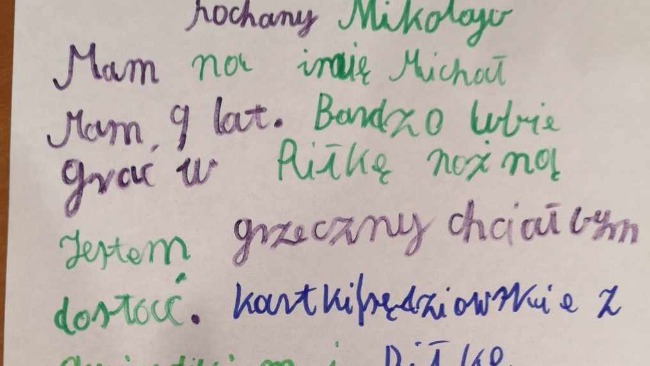 kochany Mikołaju
Mam na imię Michał
Mam 9 lat. Bardzo lubie
grać w Piłkę nożną
Jestem grzeczny chciał bym
dostać. kartki sędziowskie z
i Piłkę